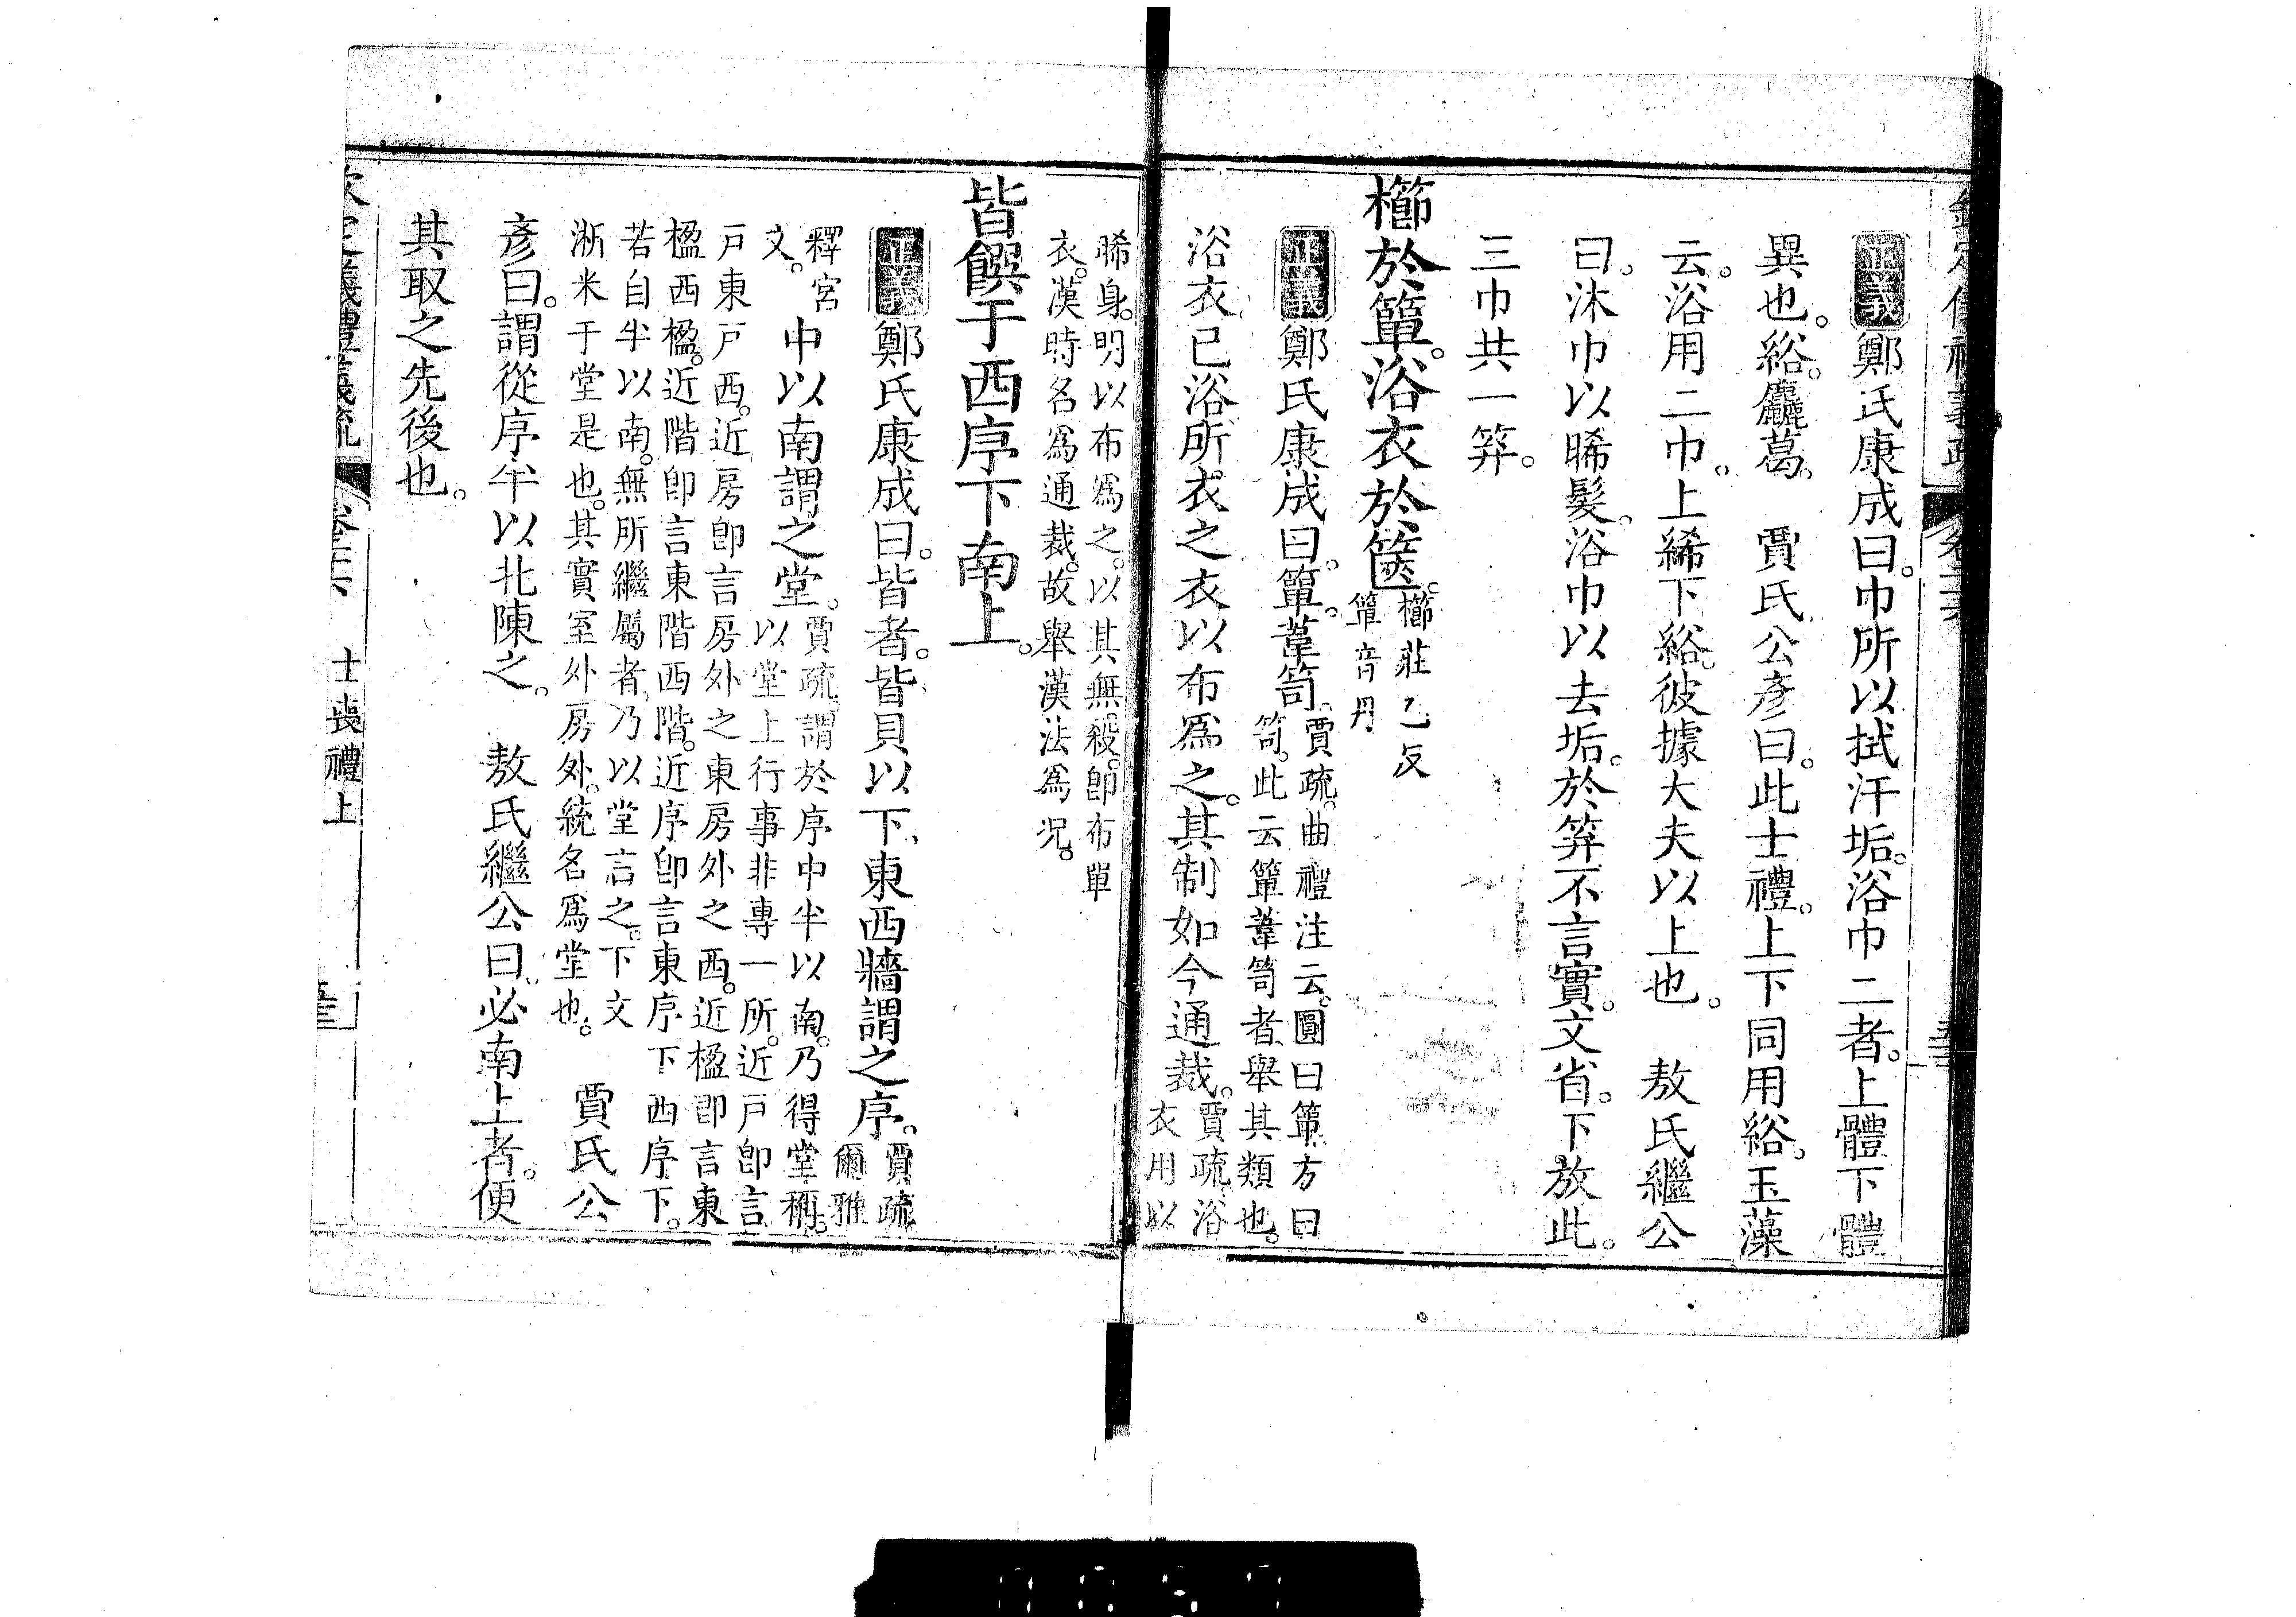 正義鄭氏康成曰。巾所以拭汗垢。浴巾二者。上體下體
異也。綌。麤葛。　賈氏公彥曰。此士禮。上下同用綌。玉藻
云。浴用二巾。上絺下綌。彼據大夫以上也。　敖氏繼公
曰。沐巾以晞髮。浴巾以去垢。於笲不言實。文省。下放此。
三巾共一笲。
櫛於簞。浴衣於篋。
櫛莊乙反
簞音丹
正義鄭氏康成曰。簞。葦笥。
賈疏。曲禮注云。圓曰簞。方曰
笥。此云簞葦笥者。舉其類也。
浴衣。已浴所衣之衣。以布爲之。其制如今通裁。
賈疏。浴
衣用以
晞身。明以布爲之。以其無殺。卽布單
衣。漢時名爲通裁。故舉漢法爲況。
皆饌于西序下南上。
正義鄭氏康成曰。皆者。皆貝以下。東西牆謂之序。
賈疏
爾雅
釋宮
文。
中以南謂之堂。
賈疏。謂於序中半以南。乃得堂稱。
以堂上行事非專一所。近戸卽言
戸東戸西。近房卽言房外之東房外之西。近楹卽言東
楹西楹。近階卽言東階西階。近序卽言東序下西序下。
若自半以南。無所繼屬者。乃以堂言之。下文
淅米于堂是也。其實室外房外。統名爲堂也。
賈氏公
彥曰。謂從序半以北陳之。　敖氏繼公曰。必南上者。便
其取之先後也。
義禮義疏
士喪禮上